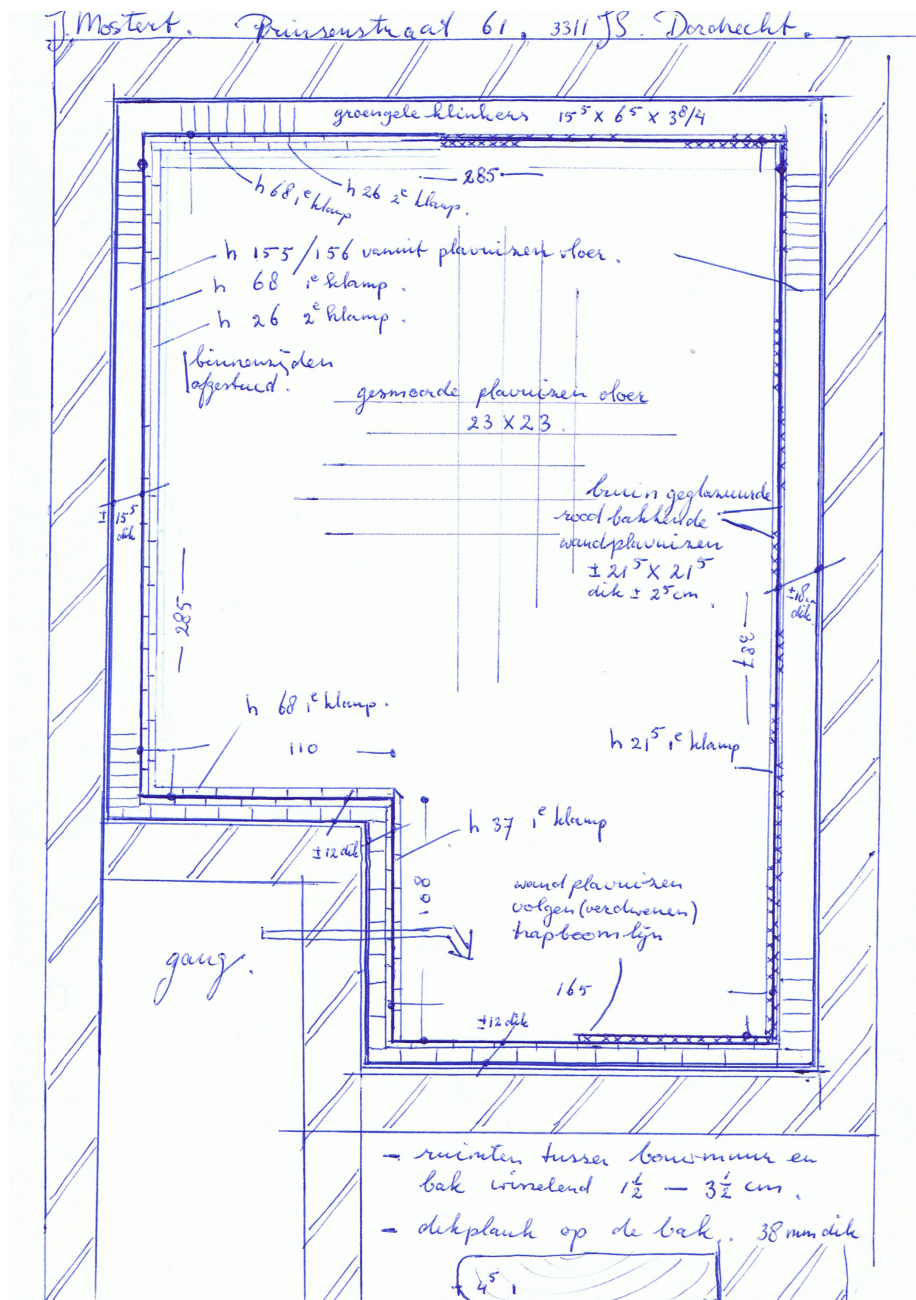 J. Mostert. Prinsenstraat 61. 3311 JS. Dordrecht.
groengele klinkers 15⁵ X 6⁵ X 3⁸/4
285
h 68 1ᵉ klamp
h 26 2ᵉ klamp.
h 155/156 vanuit plavuizen vloer.
h 68 1ᵉ klamp.
h 26 2ᵉ klamp.
binnenzijden
afgestucd.
gesmoorde plavuizen vloer
23 X 23.
± 15⁵
dik
bruin geglazuurde
roodbakkende
wandplavuizen
± 21⁵ X 21⁵
dik ± 2⁵ cm.
± 18 cm
dik.
285
387
h 68 1ᵉ klamp.
110
h 21⁵ 1ᵉ klamp
h 37 1ᵉ klamp
± 12 dik
168
wandplavuizen
volgen (verdwenen)
trapboomlijn
gang.
165
± 12 dik
- ruimten tussen bouwmuur en
bak wisselend 1½ - 3½ cm.
- dekplank op de bak. 38 mm dik
4⁵